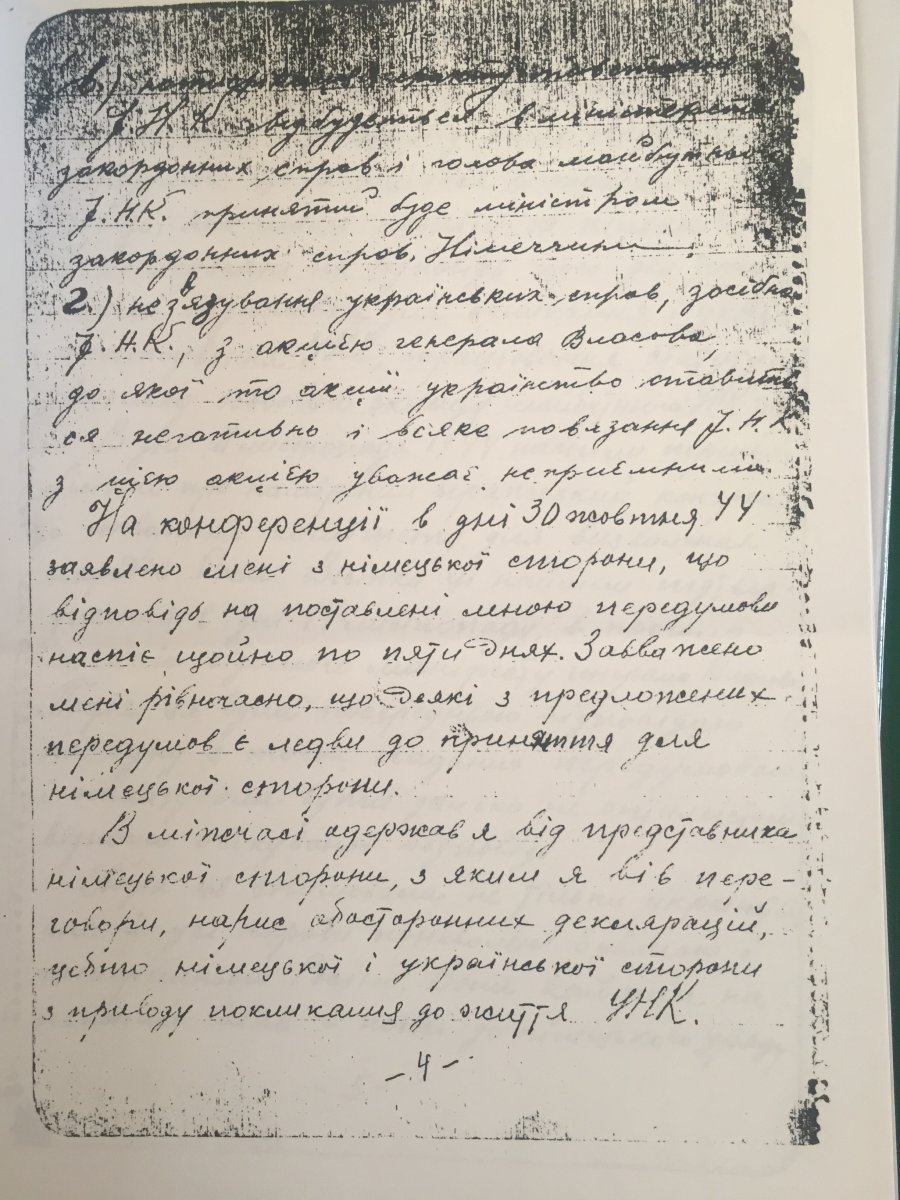 - 4 -
в.)
У.Н.К. відбудеться в міністерстві
закордонних справ і голова майбутньо
У.Н.К. принятий буде міністром
закордонних справ. Німеччини.
2.) незвядування українських справ, засібно
У.Н.К., з акцією генерала Власова,
до якої то акції українство ставить
ся негативно і всяке повязання У.Н.К.
з цією акцією уважає неприємним.
На конференції в дні 30 жовтня 44
заявлено мені з німецької сторони, що
відповідь на поставлені мною передумови
наспіє щойно по пяти днях. Завважено
мені рівночасно, що деякі з предложених
передумов є ледви до приняття для
німецької сторони.
В міжчасі одержав я від представника
німецької сторони, з яким я вів пере-
говори, нарис обосторонних деклярацій,
цебто німецької і української сторони
з приводу покликання до життя УНК.
- 4 -